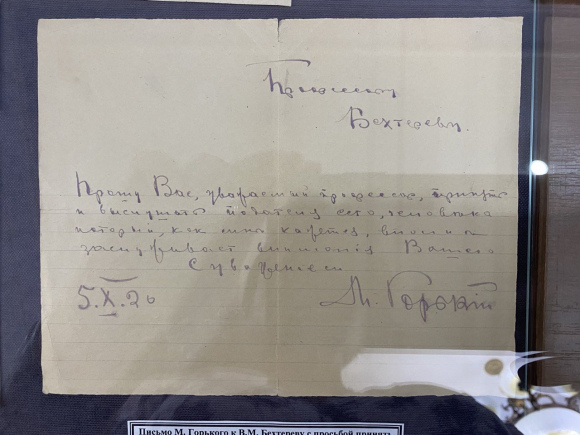 Профессору
Бехтереву.
Прошу Вас, уважаемый профессор, принять
и выслушать подателя сего, человека
который, как мне кажется, вполне
заслуживает внимания Вашего
С уважением
5.X.20 М. Горький
Письмо М. Горького к В.М. Бехтереву с просьбой принять